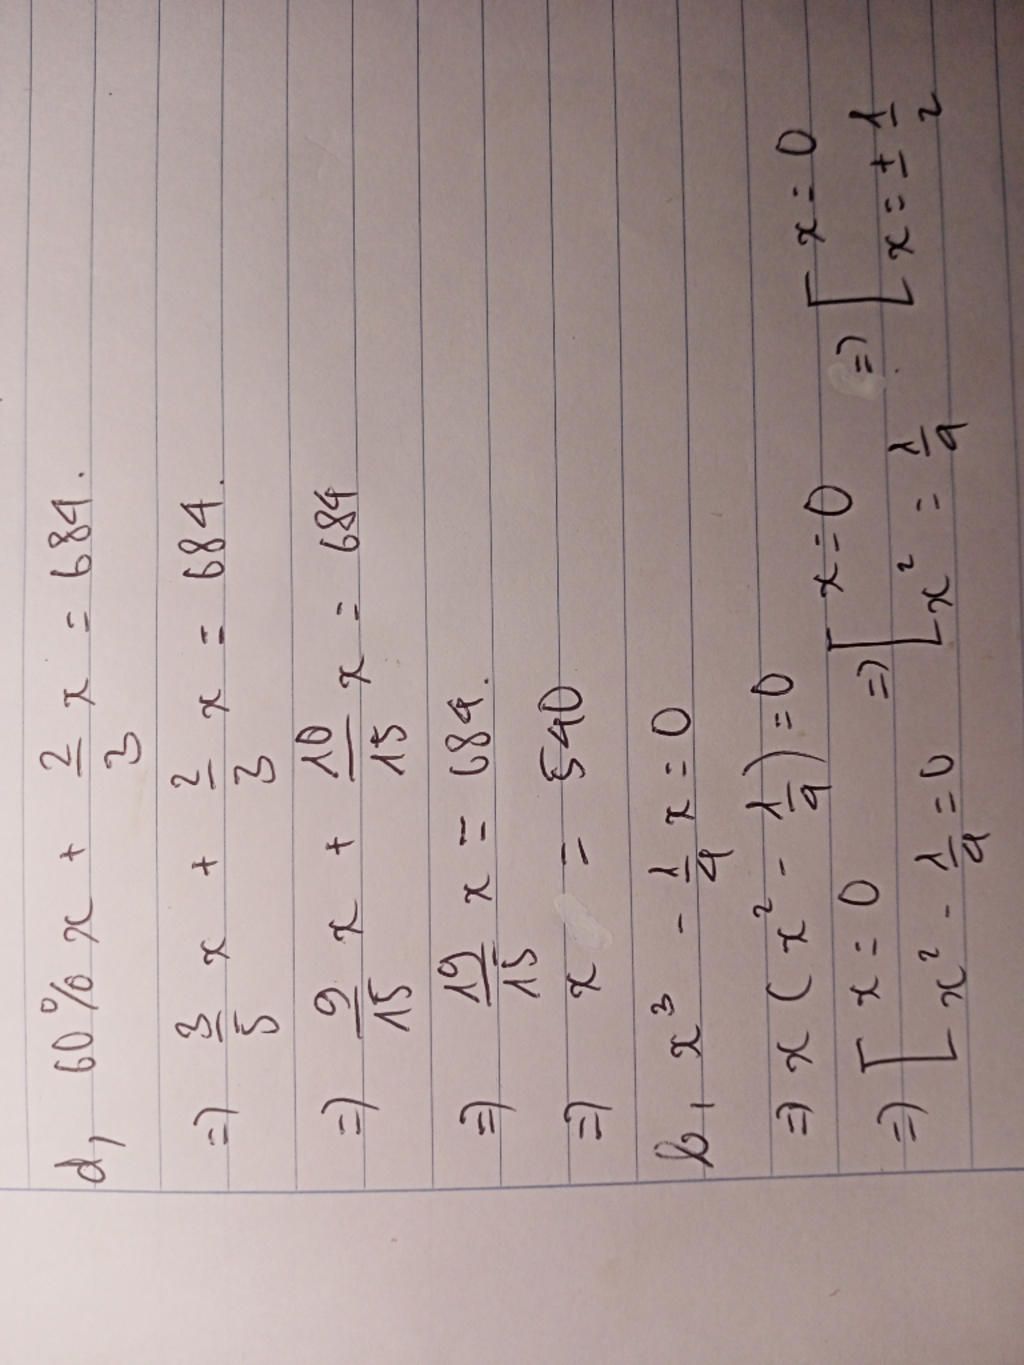 d, 60% x + 2/3 x = 684.
=) 3/5 x + 2/3 x = 684.
=) 9/15 x + 10/15 x = 684
=) 19/15 x = 684.
=) x = 540
b, x³ - 1/4 x = 0
=) x ( x² - 1/4 ) = 0
=) [ x = 0 =) [ x = 0 =) [ x = 0
[ x² - 1/4 = 0 [ x² = 1/4 [ x = ± 1/2